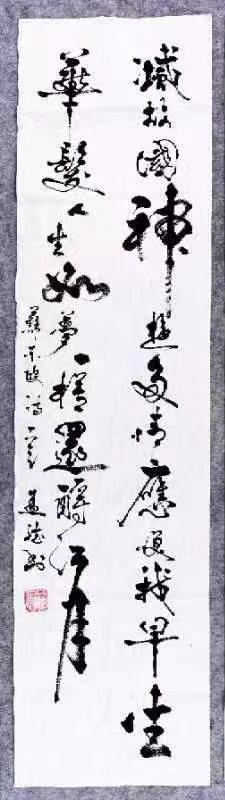 滅故國神遊多情應笑我早生
華髮人生如夢一樽還酹江月
蘇東坡詩